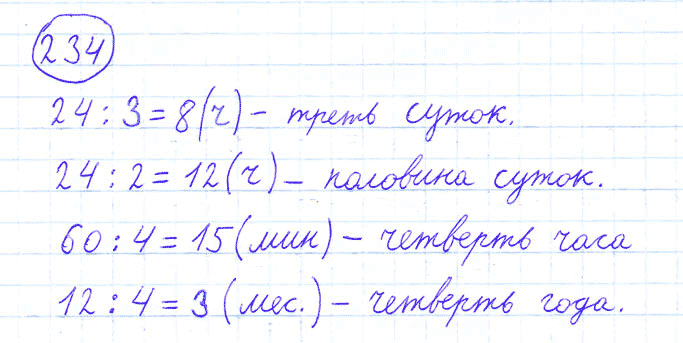 234
24 : 3 = 8 (ч) – треть суток.
24 : 2 = 12 (ч) – половина суток.
60 : 4 = 15 (мин) – четверть часа
12 : 4 = 3 (мес.) – четверть года.